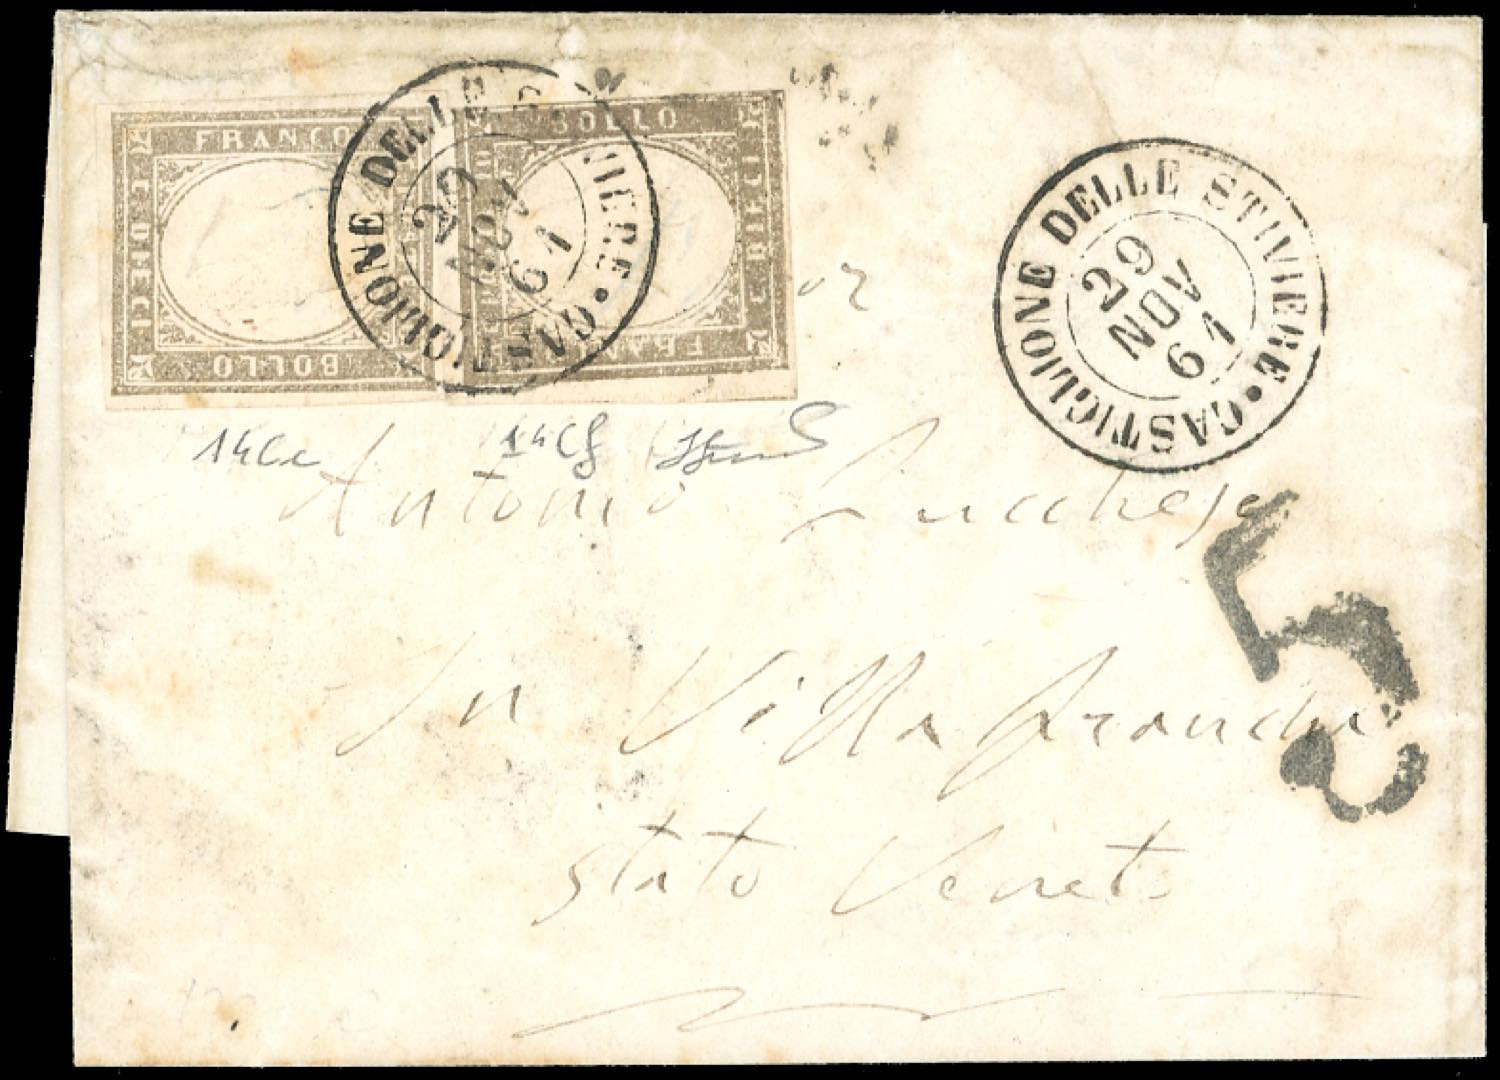 FRANCO
C. DIECI
BOLLO
BOLLO
C. DIECI
CASTIGLIONE DELLE STIVIERE
29
NOV
61
CASTIGLIONE DELLE STIVIERE
29
NOV
61
14Cc 14Cg
Antonio Lucchese
5
In Villafranca
Stato Veneto